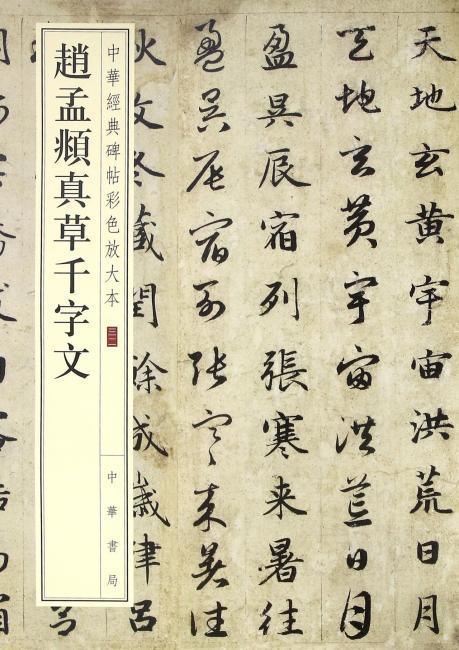 天地玄黄宇宙洪荒日月
天地玄黄宇宙洪荒日月
盈昃辰宿列張寒来暑往
盈昃辰宿列張寒来暑往
秋收冬藏閏餘成歲律吕
中華經典碑帖彩色放大本
三二
中華書局
趙孟頫真草千字文